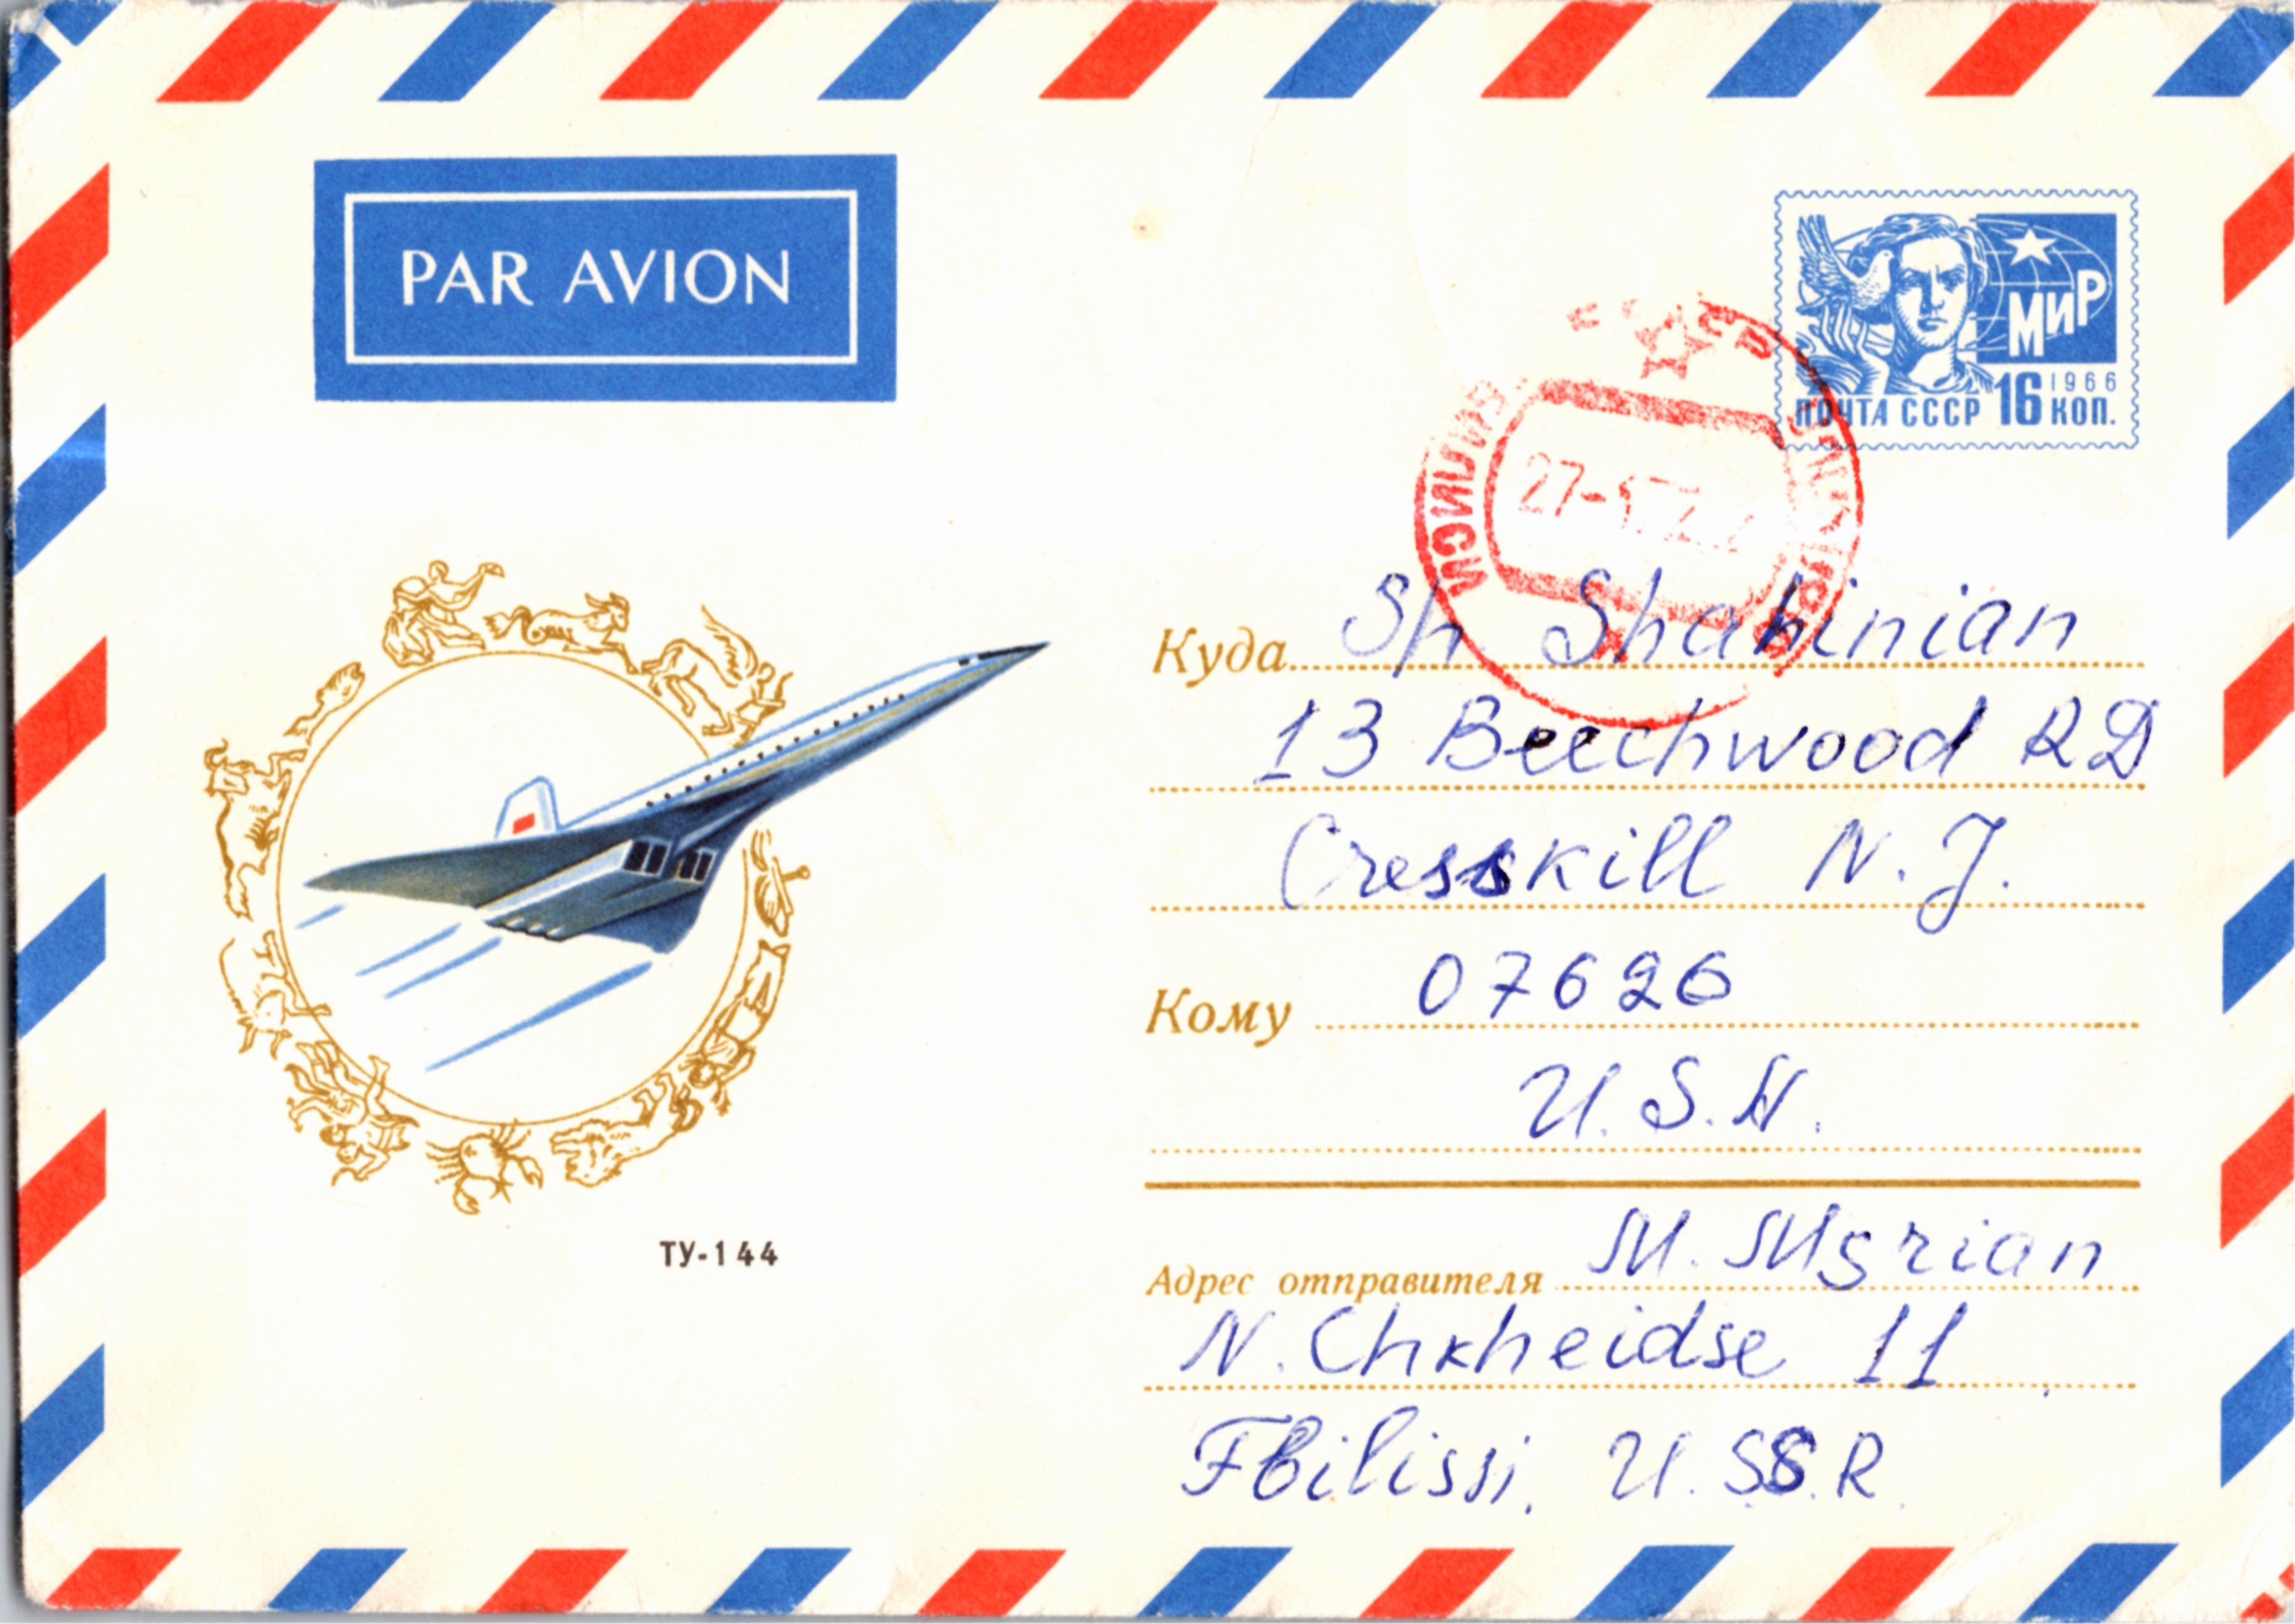 PAR AVION
МИР
1966
ПОЧТА СССР 16 КОП.
27-1
Куда Sh Shahinian
13 Beechwood RD
Cresskill N.J.
Кому 07626
U.S.A.
ТУ-144
Адрес отправителя M. Mgrian
N. Chkheidse 11
Tbilissi. U.SS.R.